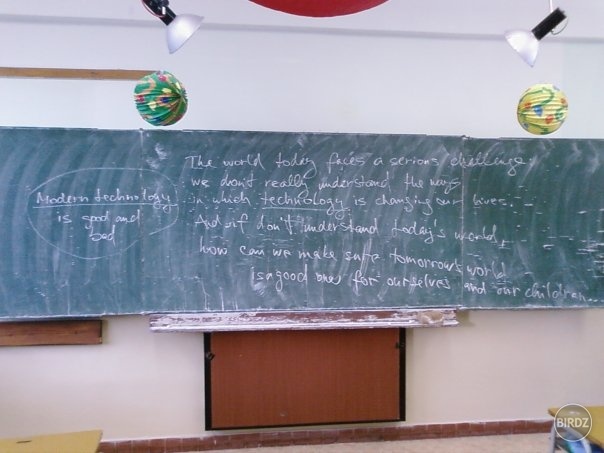 Modern technology
is good and
bad
The world today faces a serious challenge:
we don't really understand the ways
in which technology is changing our lives.
And if don't understand today's world,
how can we make sure tomorrow's world
is a good one for ourselves and our children...
BIRDZ